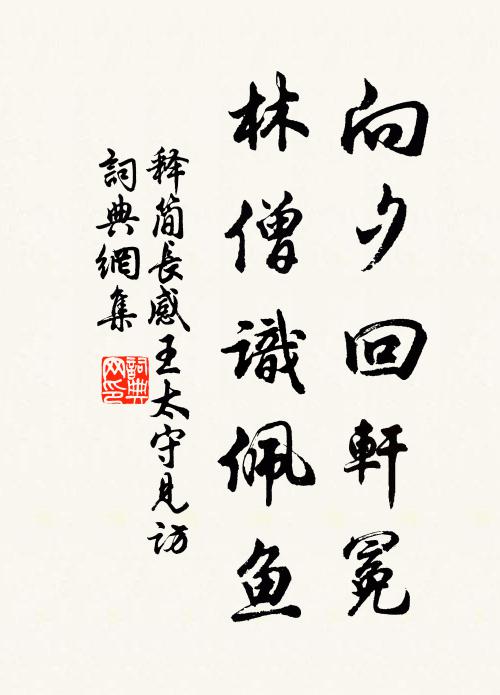 向夕回軒冕
林僧識佩鱼
释简長感王太守見访
詞典網集
詞典
网印